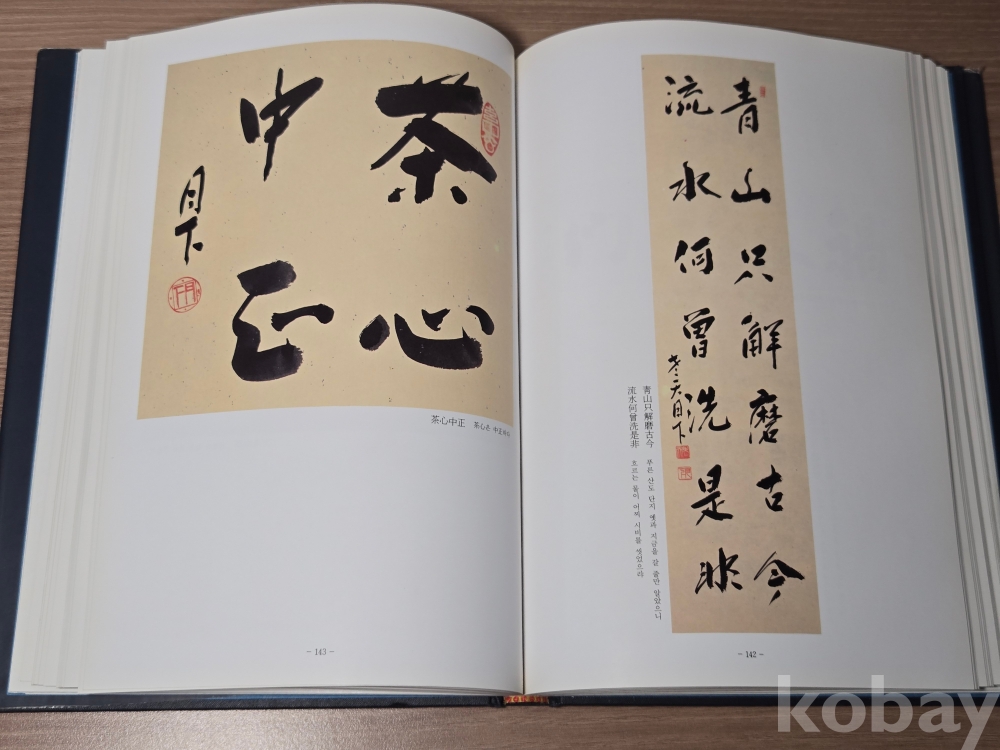 青山只解磨古今
流水何曾洗是非
老天月下
靑山只解磨古今
流水何曾洗是非
푸른 산도 단지 옛과 지금을 갈 줄만 알았으니
흐르는 물이 어찌 시비를 씻었으랴
- 142 -
茶心
中正
月下
茶心中正 茶心은 中正
- 143 -
kobay